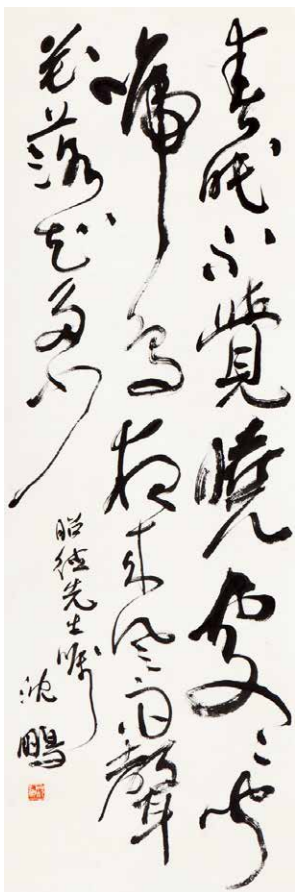 春眠不覺曉處處聞
啼鳥夜來風雨聲
花落知多少
先生嘱
沈鵬